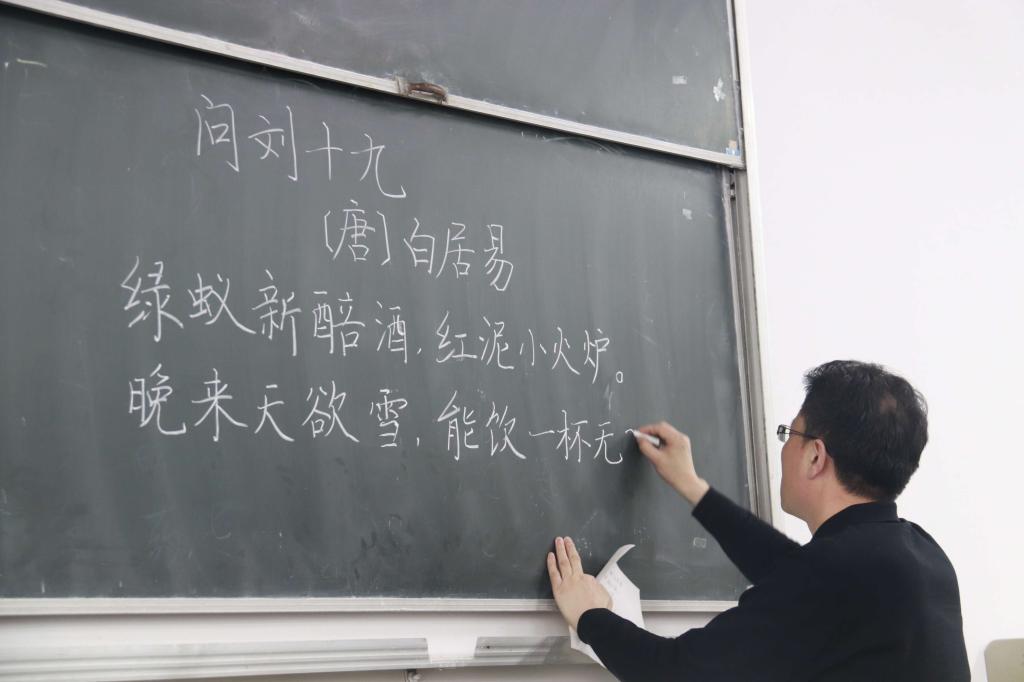 问刘十九
〔唐〕白居易
绿蚁新醅酒，红泥小火炉。
晚来天欲雪，能饮一杯无